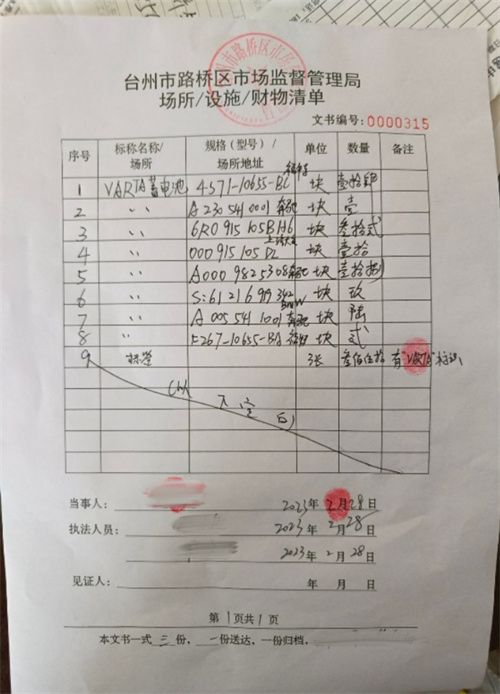 台州市路桥区市场监督管理局
场所/设施/财物清单
文书编号:0000315
序号 标称名称/场所 规格(型号)/场所地址 单位 数量 备注
1 VARTA蓄电池 4S71-10655-BC 块
2 〃 A 230 541 0001 奔驰 块 壹
3 〃 6R0 915 105B 块 叁拾弍
4 〃 000 915 105 DL 块 壹拾
5 〃 A000 982 5308 奔驰 块 壹拾捌
6 〃 BMW 块 玖
7 〃 A 005 541 1001 奔驰 块 陆
8 〃 F267-10655-BA 块 弍
9 标签 张 叁佰伍拾 有"VARTA"标识
以下空白
当事人: 2023年2月28日
执法人员: 2023年2月28日
2023年2月28日
见证人: 年 月 日
第1页共1页
本文书一式三份,一份送达,一份归档,